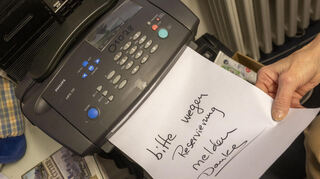 PHILIPS
bitte wegen
Reservierung
melden
Danke